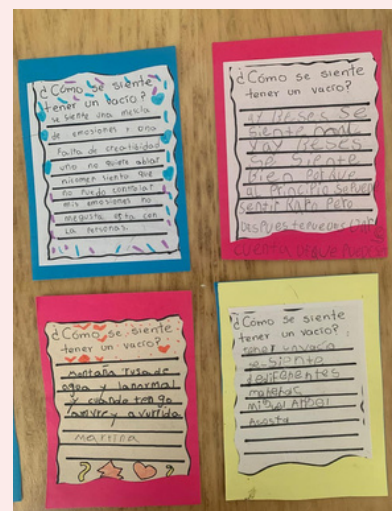 ¿Cómo se siente
tener un vacío?
se siente una mezcla
de emosiones y una
Falta de creatibidad
uno no quiere ablar
nicomer siento que
no puedo controlar
mis emosiones no
megusta esta con
La personas.
¿Cómo se siente
tener un vacío?
ay beses se
siente mal
y ay beses
se siente
Bien Porque
al Principio sepuede
sentir Raro Pero
DESPUES tepuedes dar
cuenta DEQUE PUEDES
¿Cómo se siente
tener un vacío?
montaña rusa de
agua y lanormal
y cuando tengo
amvre y avurrida
martina
¿Cómo se siente
tener un vacío?
se siente
dediferentes
maneras
miguel ANGel
Acosta